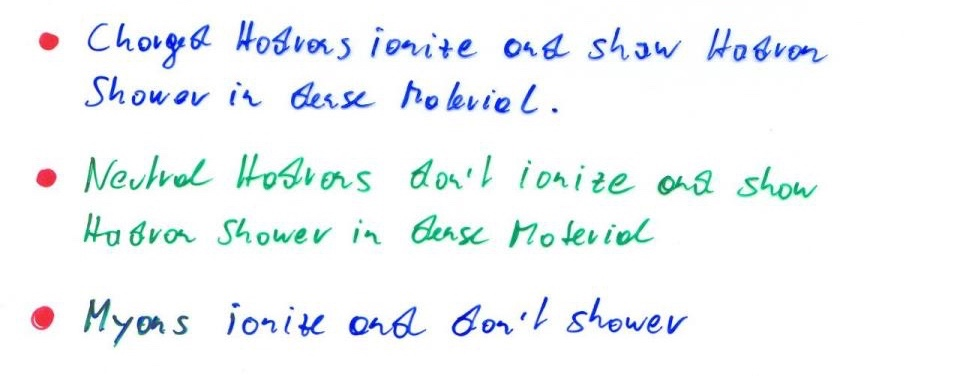 • Charged Hadrons ionize and show Hadron
Shower in dense Material.
• Neutral Hadrons don't ionize and show
Hadron Shower in dense Material
• Myons ionize and don't shower